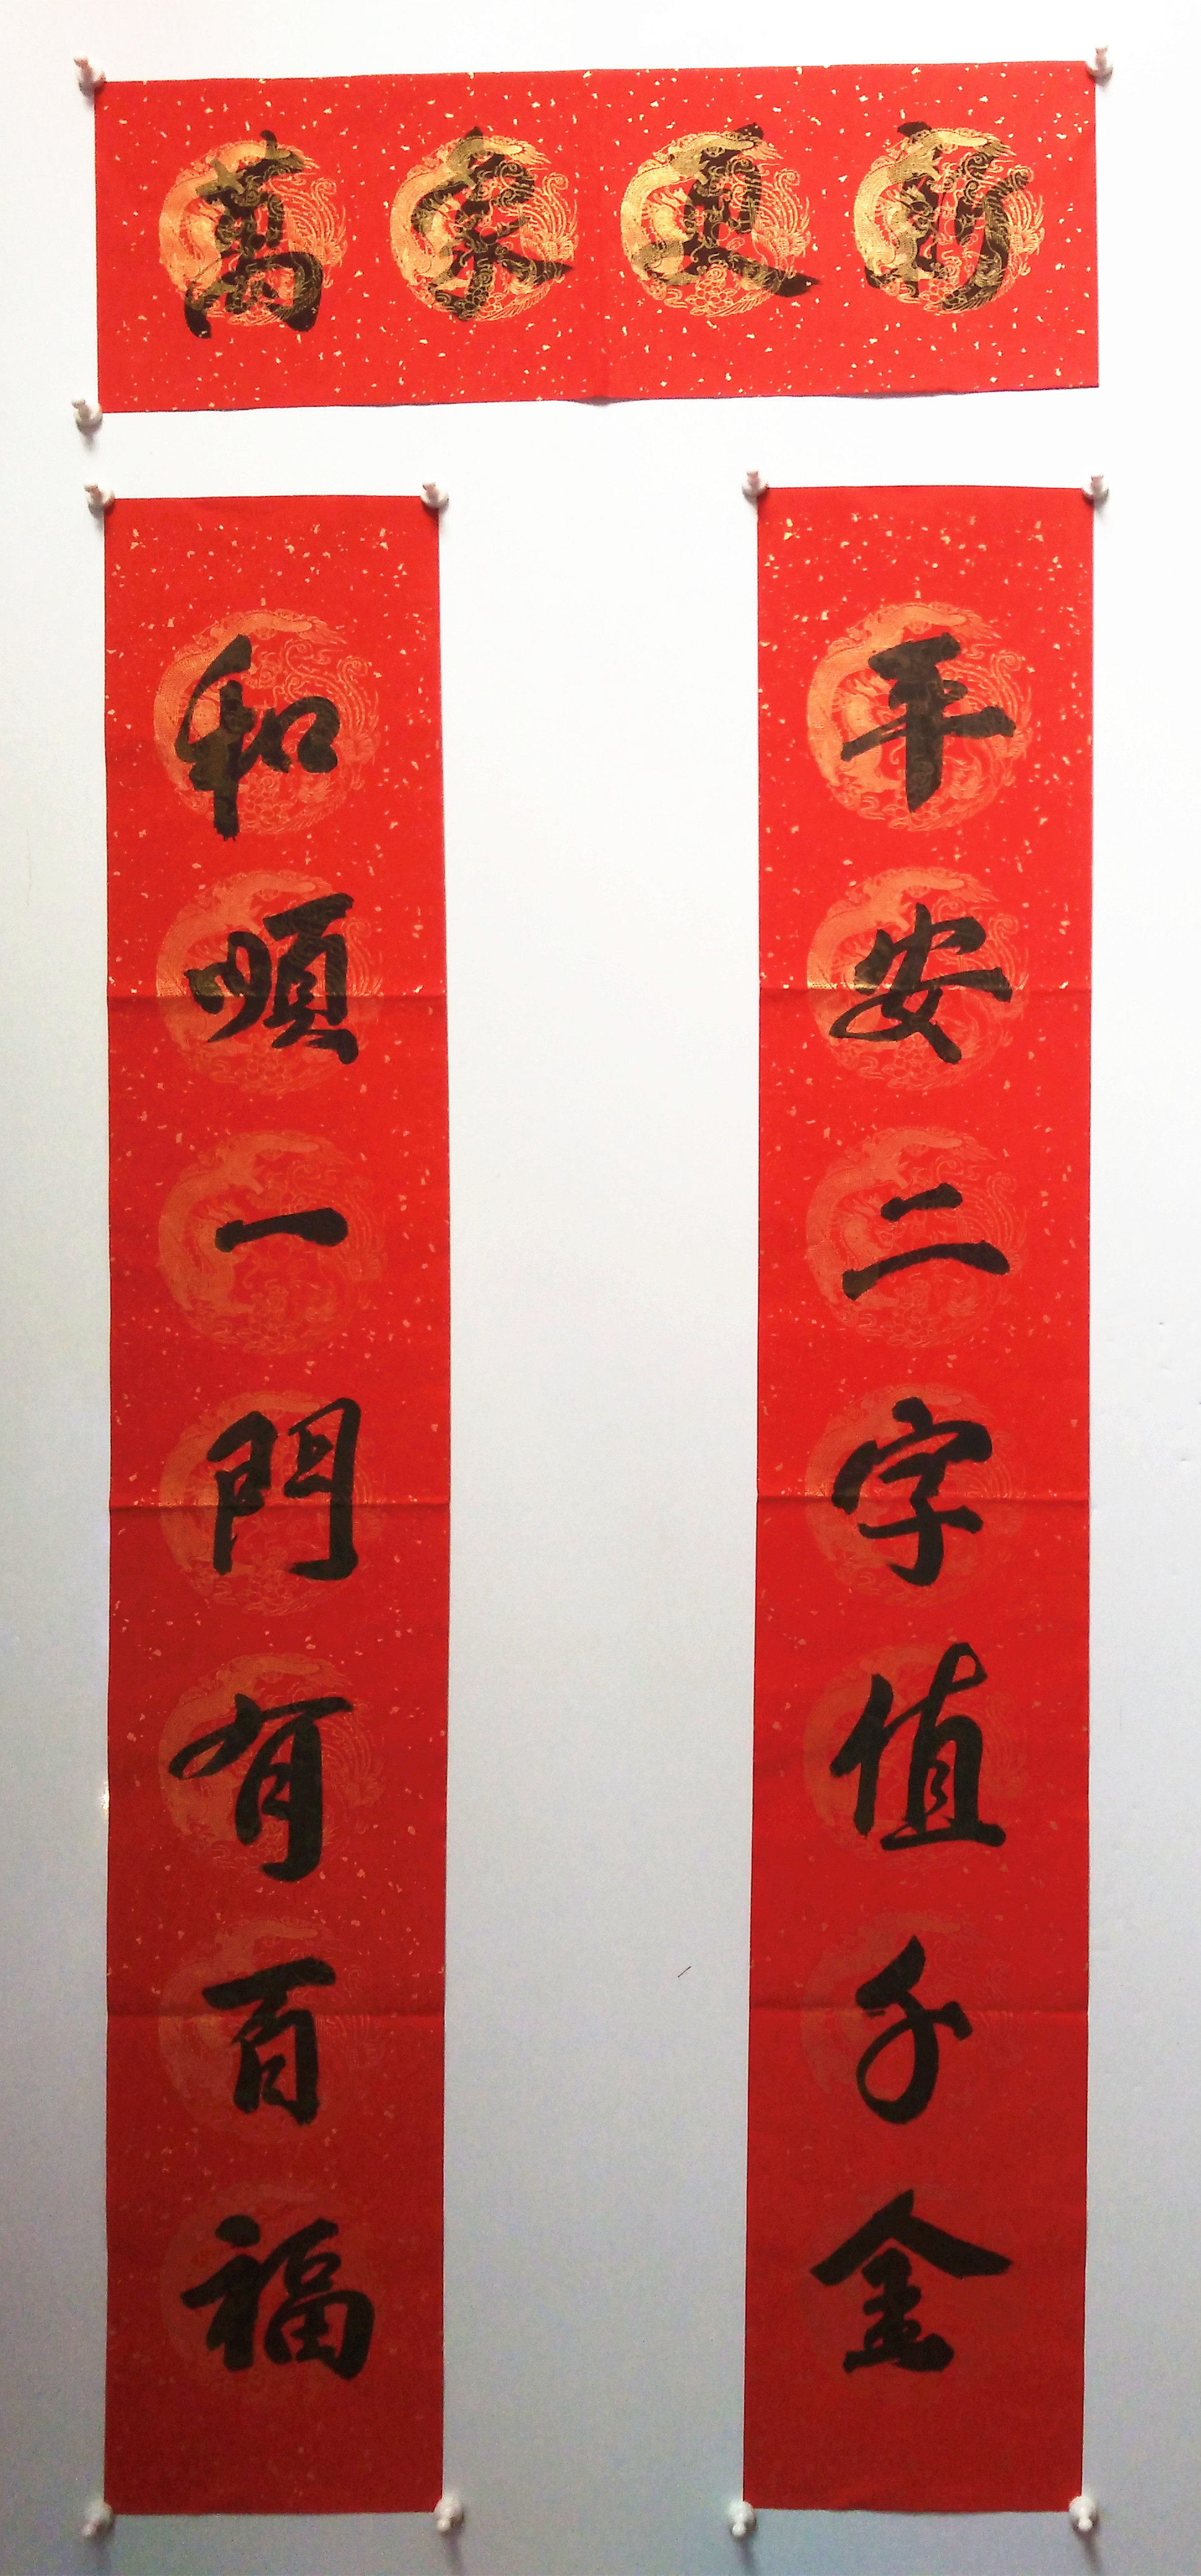 萬象更新
和順一門有百福
平安二字值千金